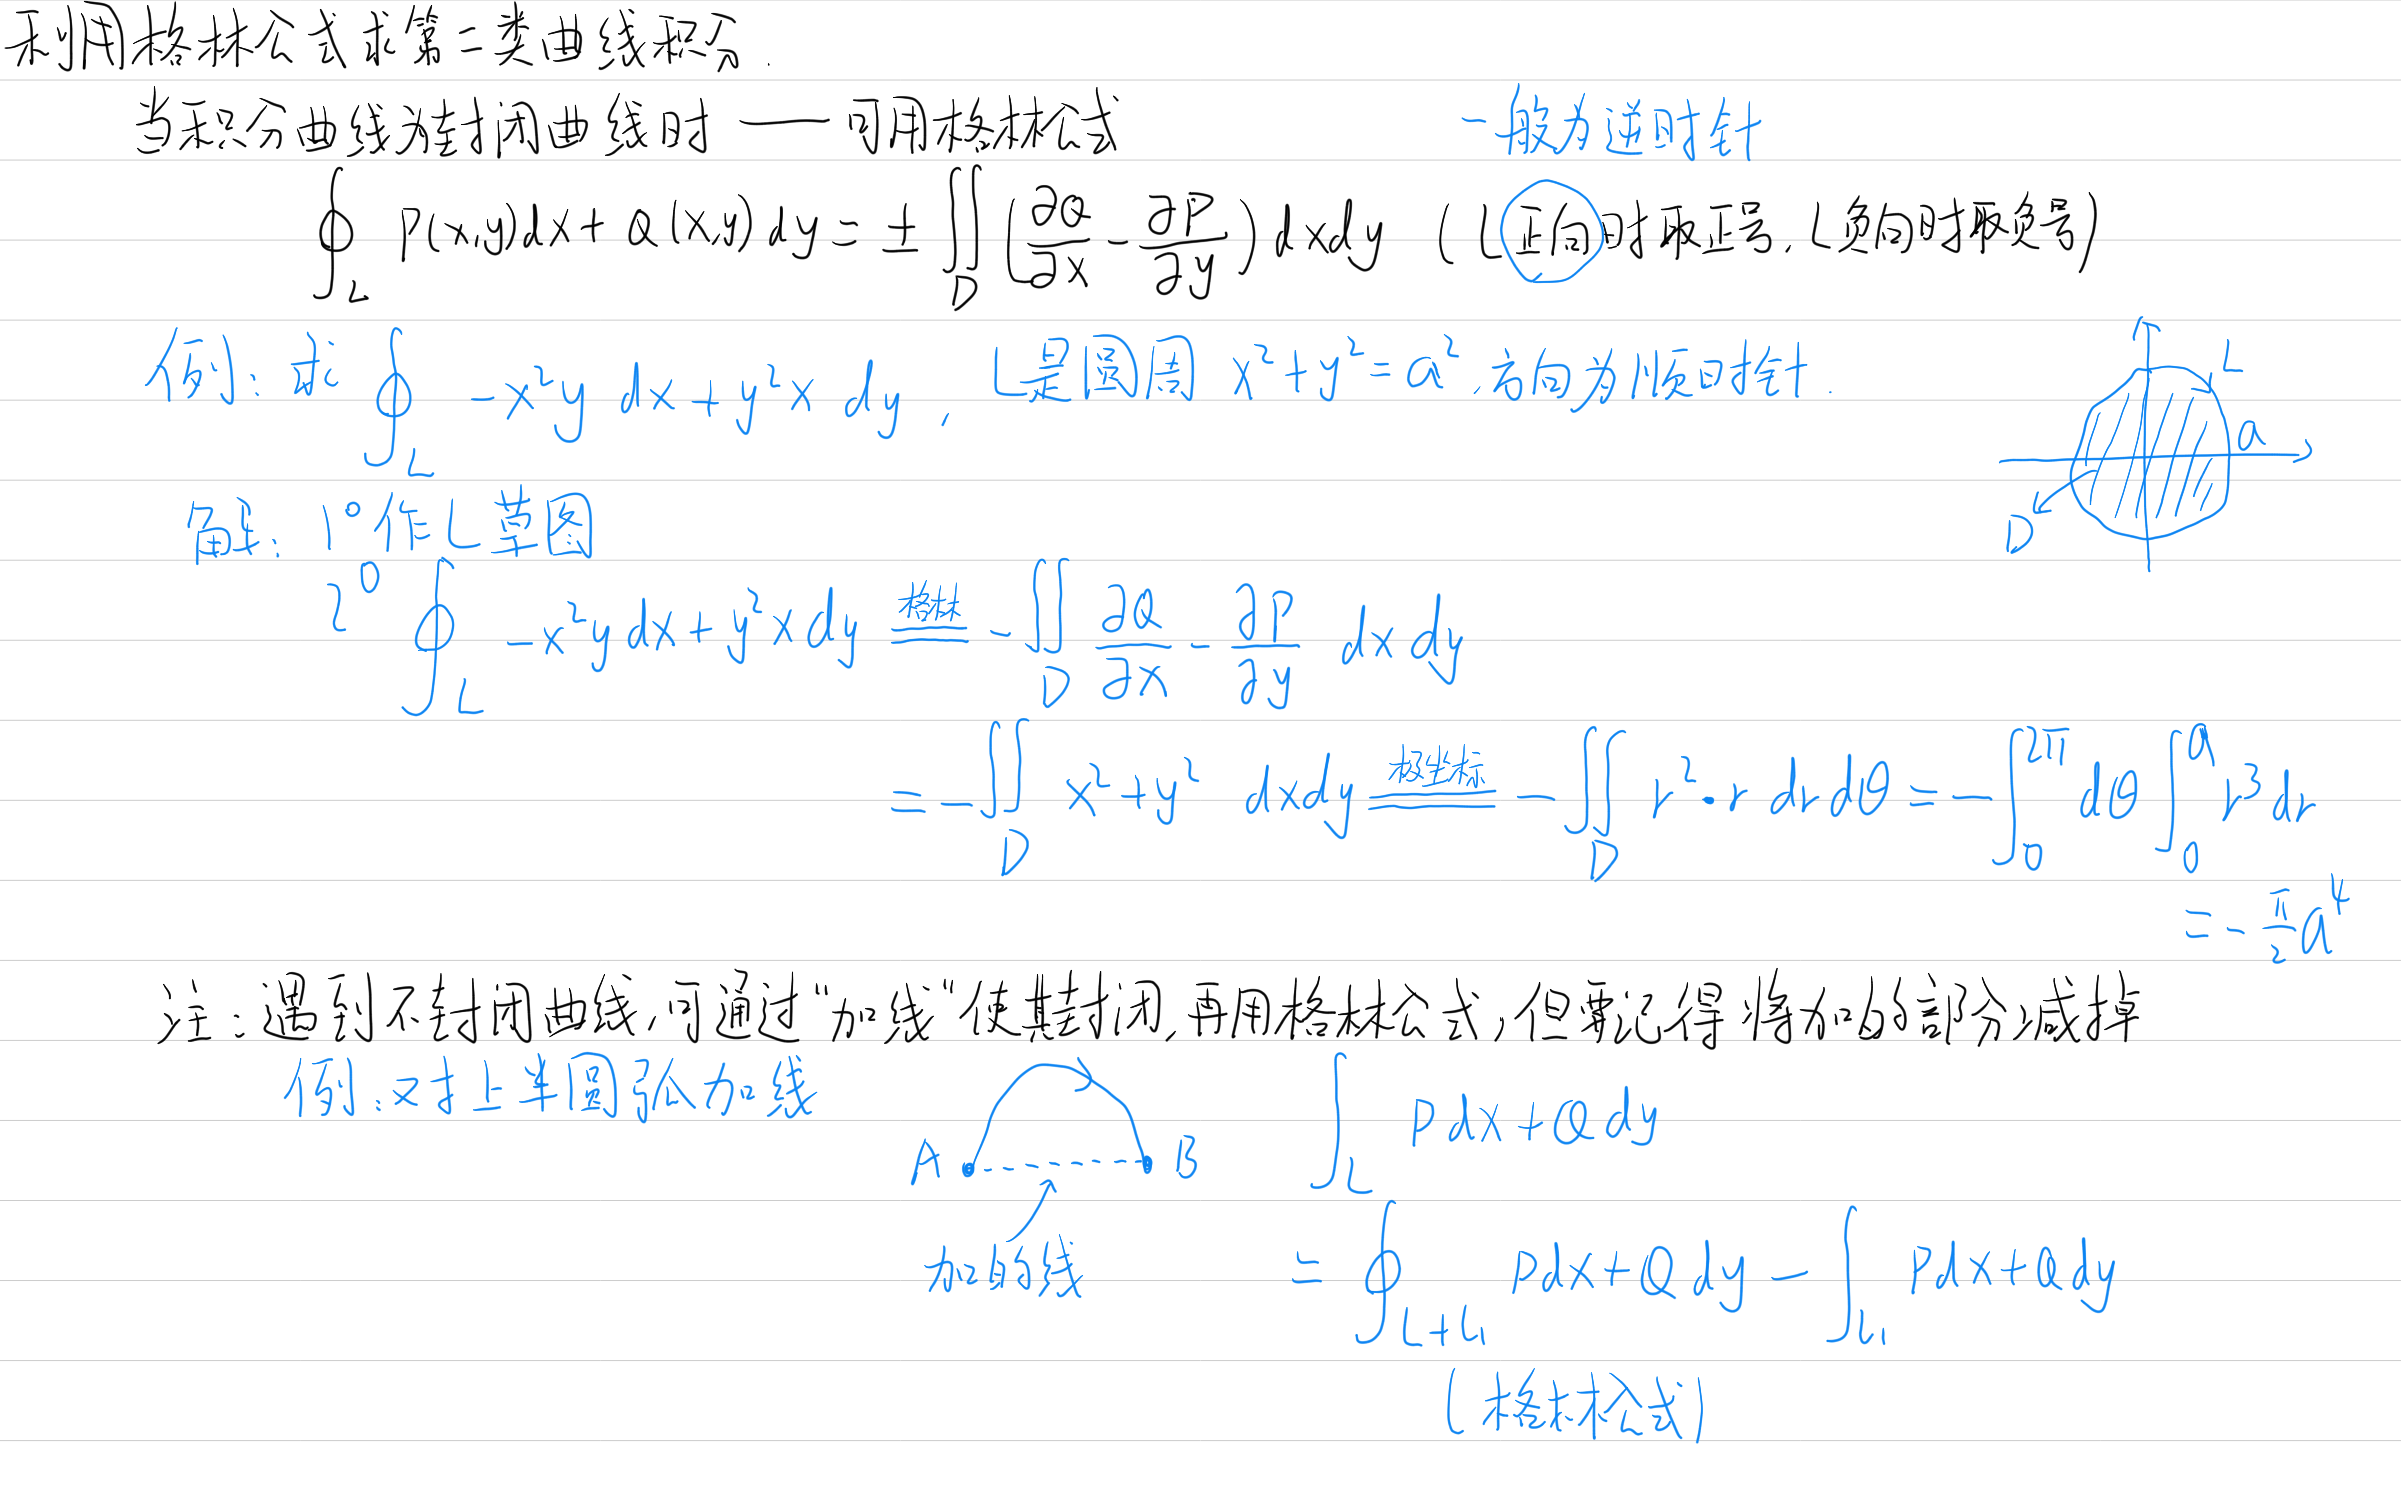 利用格林公式求第二类曲线积分.
当积分曲线为封闭曲线时 —— 可用格林公式
一般为逆时针
∮_L P(x,y)dx + Q(x,y)dy = ± ∬_D (∂Q/∂x - ∂P/∂y) dxdy (L正向时取正号,L负向时取负号)
例: 求 ∮_L -x²y dx + y²x dy, L是圆周 x²+y²=a², 方向为顺时针.
L
a
D
解: 1° 作L草图
2° ∮_L -x²y dx + y²x dy =格林= -∬_D ∂Q/∂x - ∂P/∂y dxdy
= -∬_D x²+y² dxdy =极坐标= -∬_D r²·r dr dθ = -∫_0^{2π} dθ ∫_0^a r³ dr
= -π/2 a⁴
注: 遇到不封闭曲线,可通过"加线"使其封闭,再用格林公式,但要记得将加的部分减掉
例: 对上半圆弧加线
A B
加的线
∫_L Pdx+Qdy
= ∮_{L+L₁} Pdx+Qdy - ∫_{L₁} Pdx+Qdy
(格林公式)